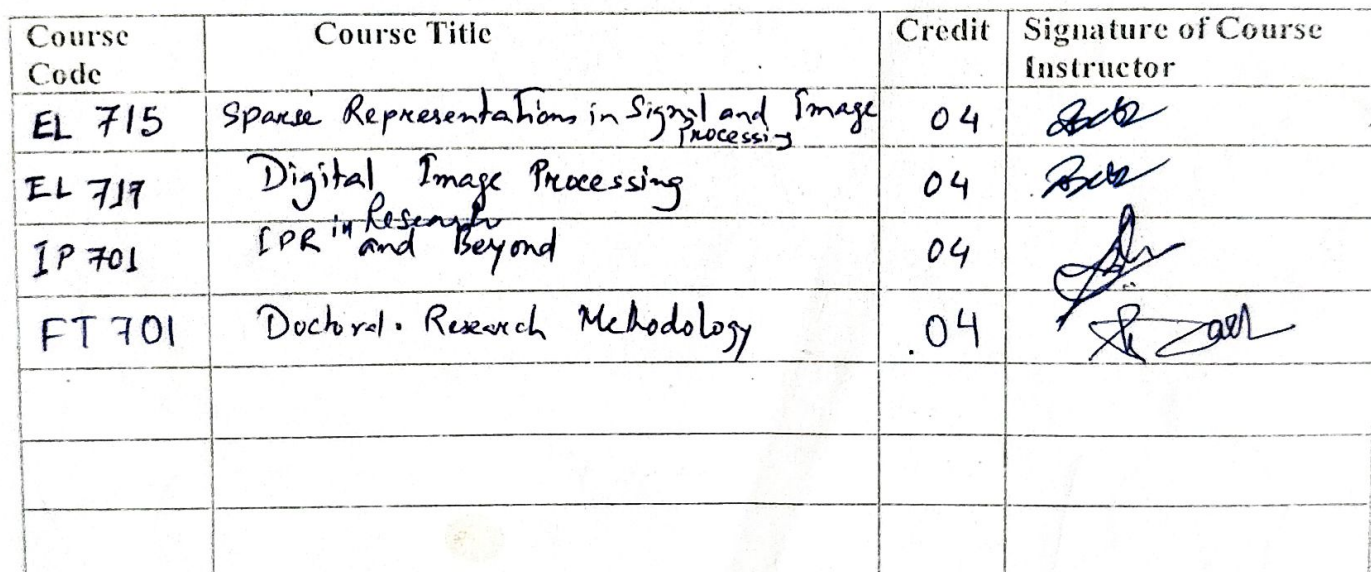 Course Code Course Title Credit Signature of Course Instructor
EL 715 Sparse Representations in Signal and Image Processing 04
EL 717 Digital Image Processing 04
IP 701 IPR in Research and Beyond 04
FT 701 Doctoral Research Methodology 04